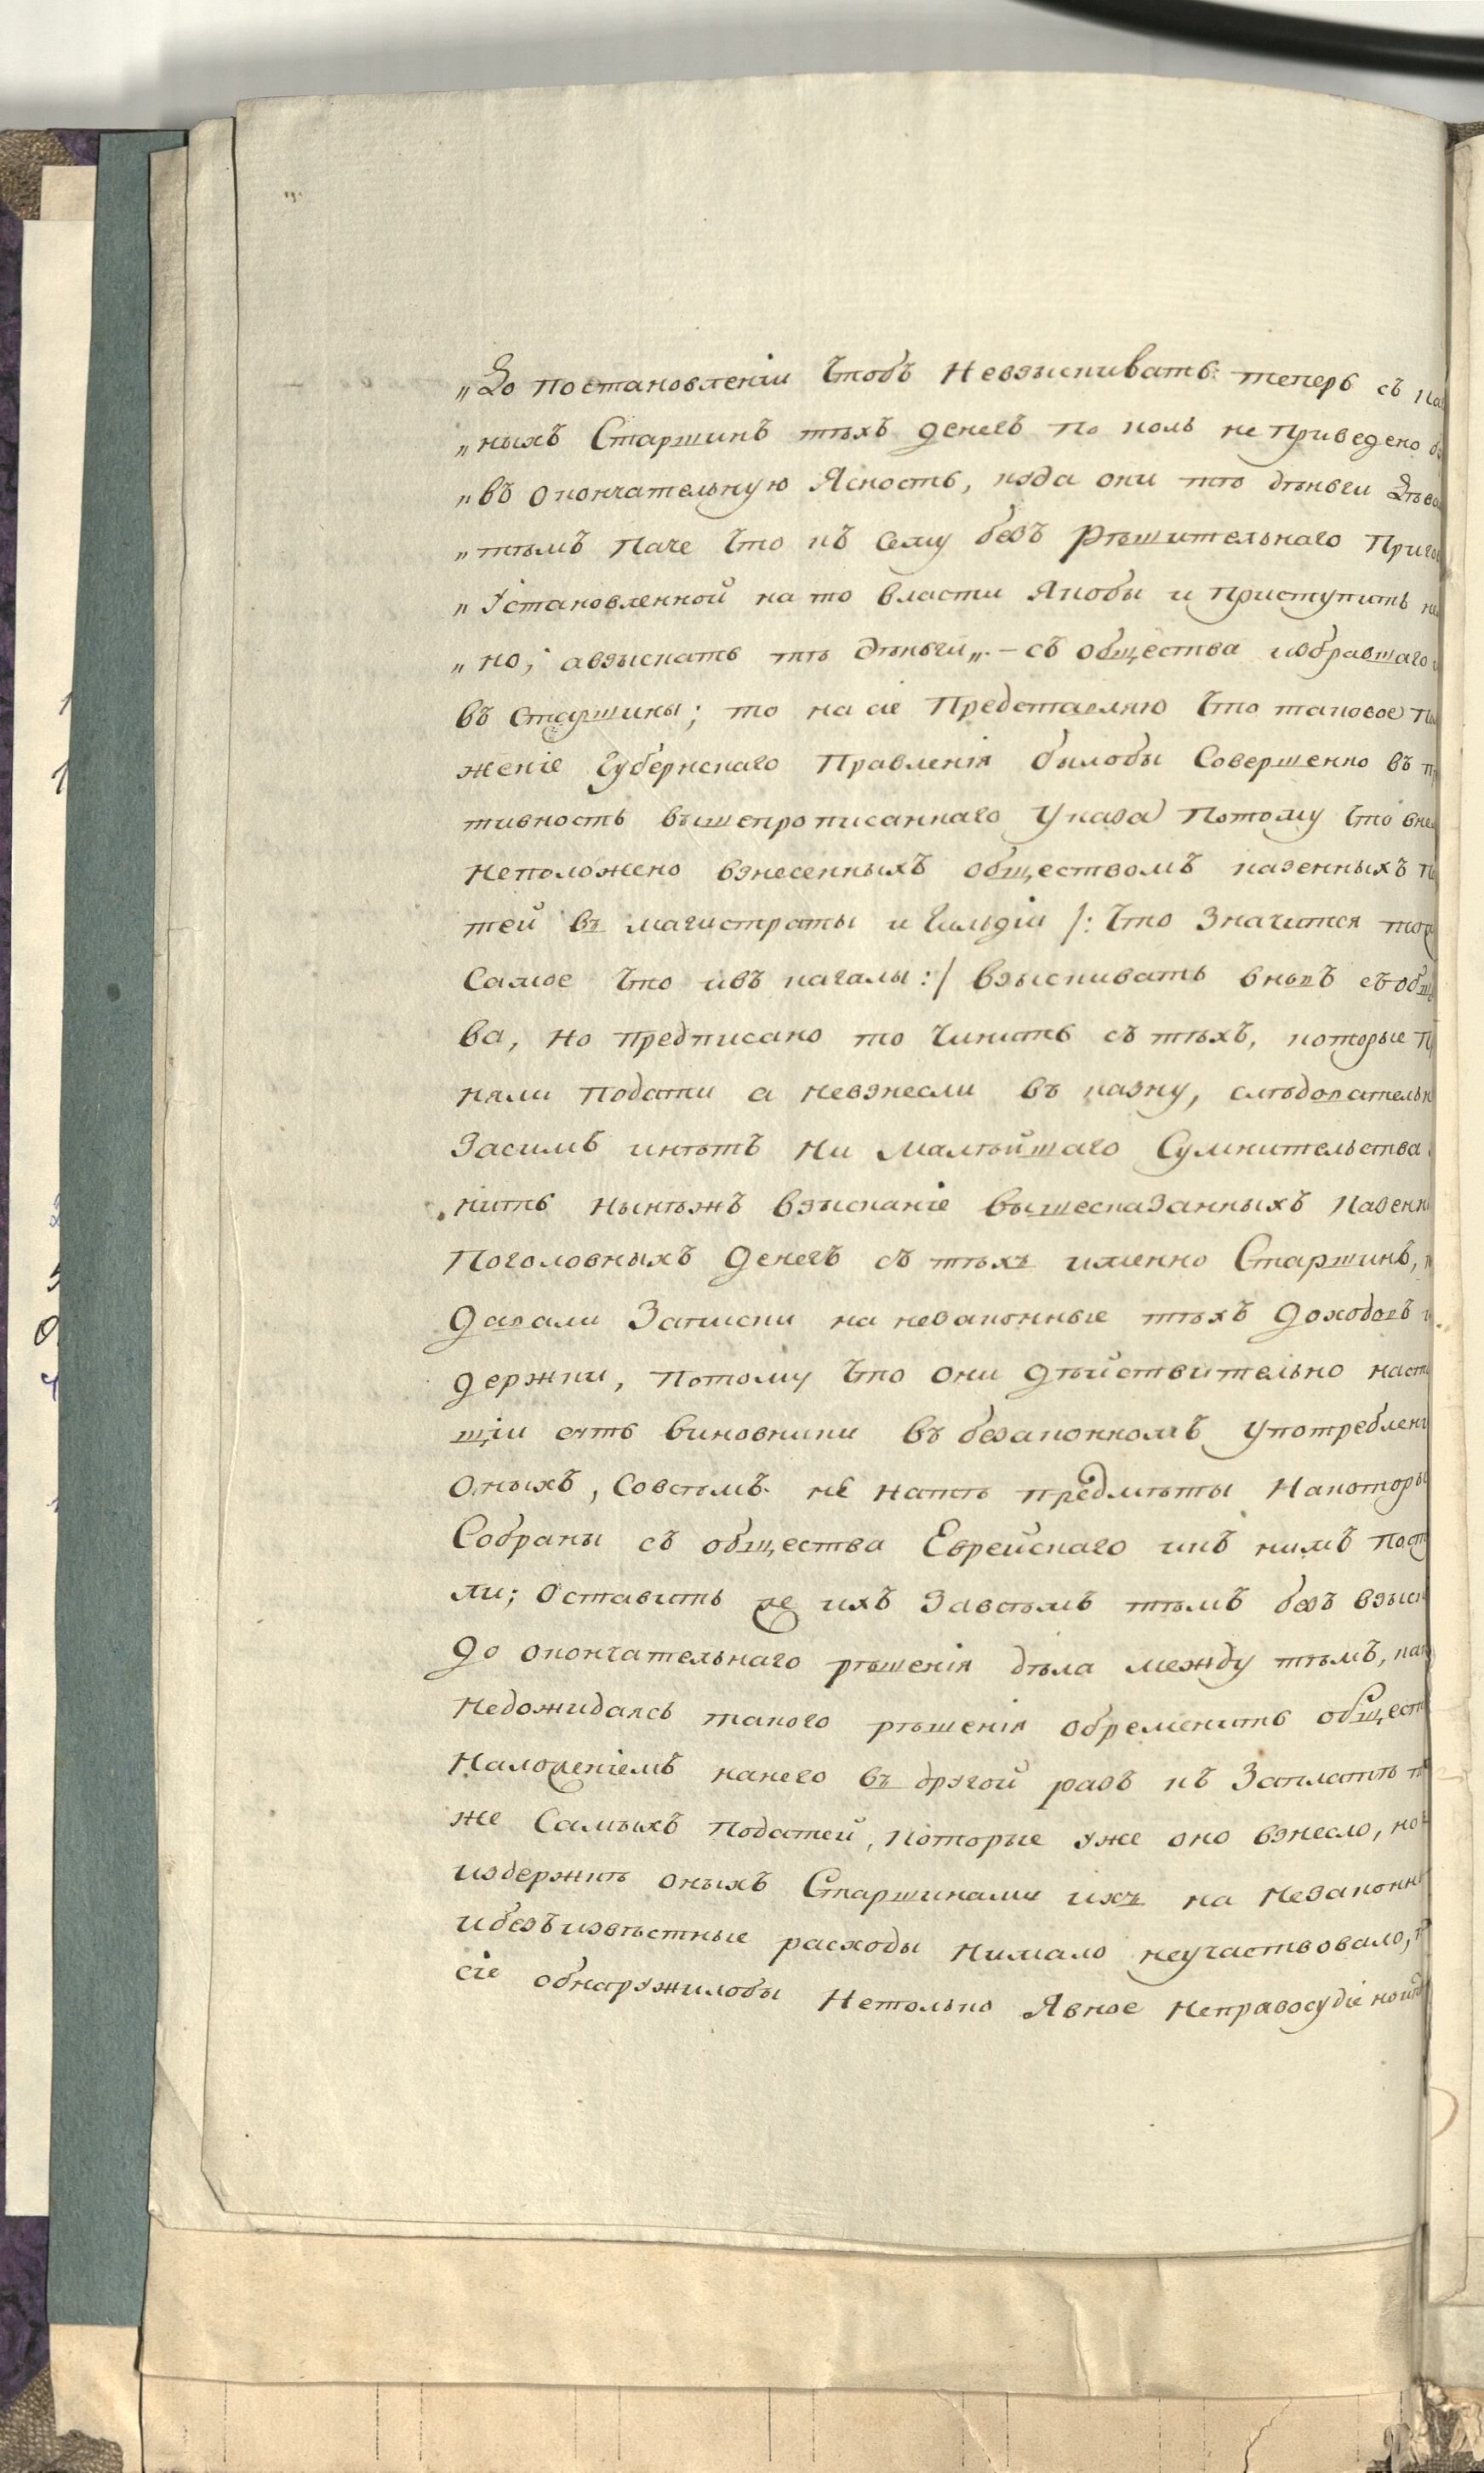 „До постановленіи чтобъ невзыскивать теперь съ
„ныхъ Старшинъ тѣхъ денегъ по коль не приведено
„въ окончательную Ясность, куда они тѣ дѣньги
„тѣмъ паче что къ сему безъ рѣшительнаго
„Установленной на то власти Якобы и приступить
„но; авзыскать тѣ дѣньги„.— съ общества избравшаго
въ Старшины; то на сіе Представляю что таковое
женіе Губернскаго Правленія былобы Совершенно въ
тивность вышепрописаннаго Указа) Потому что
неположено взнесенныхъ обществомъ казенныхъ
тей въ магистраты и Гильдіи /: Что Значится
Самое что ивъ кагалы :/ взыскивать вновъ
ва, но предписано то Чинить съ тѣхъ, которые
няли подати а невзнесли въ казну,
Засимъ инѣтъ ни малѣйшаго Сумнительства
нить нынѣжъ взысканіе вышесказанныхъ
Поголовныхъ денегъ съ тѣхъ именно Старшинъ,
давали Записки на незаконные тѣхъ доходовъ
держки, потому что они дѣйствительно
щіи суть виновники въ безаконномъ
Оныхъ, совсѣмъ не натѣ предмѣты
Собраны съ общества Еврейскаго икъ нимъ
ли; Оставить же ихъ Завсѣмъ тѣмъ безъ
до окончательнаго рѣшенія дѣла между тѣмъ,
недожидаясь такого рѣшенія обременить
Наложеніемъ нанего въ другой разъ къ Заплатѣ
же Самыхъ податей, Которые уже оно взнесло,
издержкѣ оныхъ Старшинами ихъ на
ибезъизвѣстные расходы нимало неучаствовало,
сіе обнаружилобы Нетолько Явное Неправосудіе